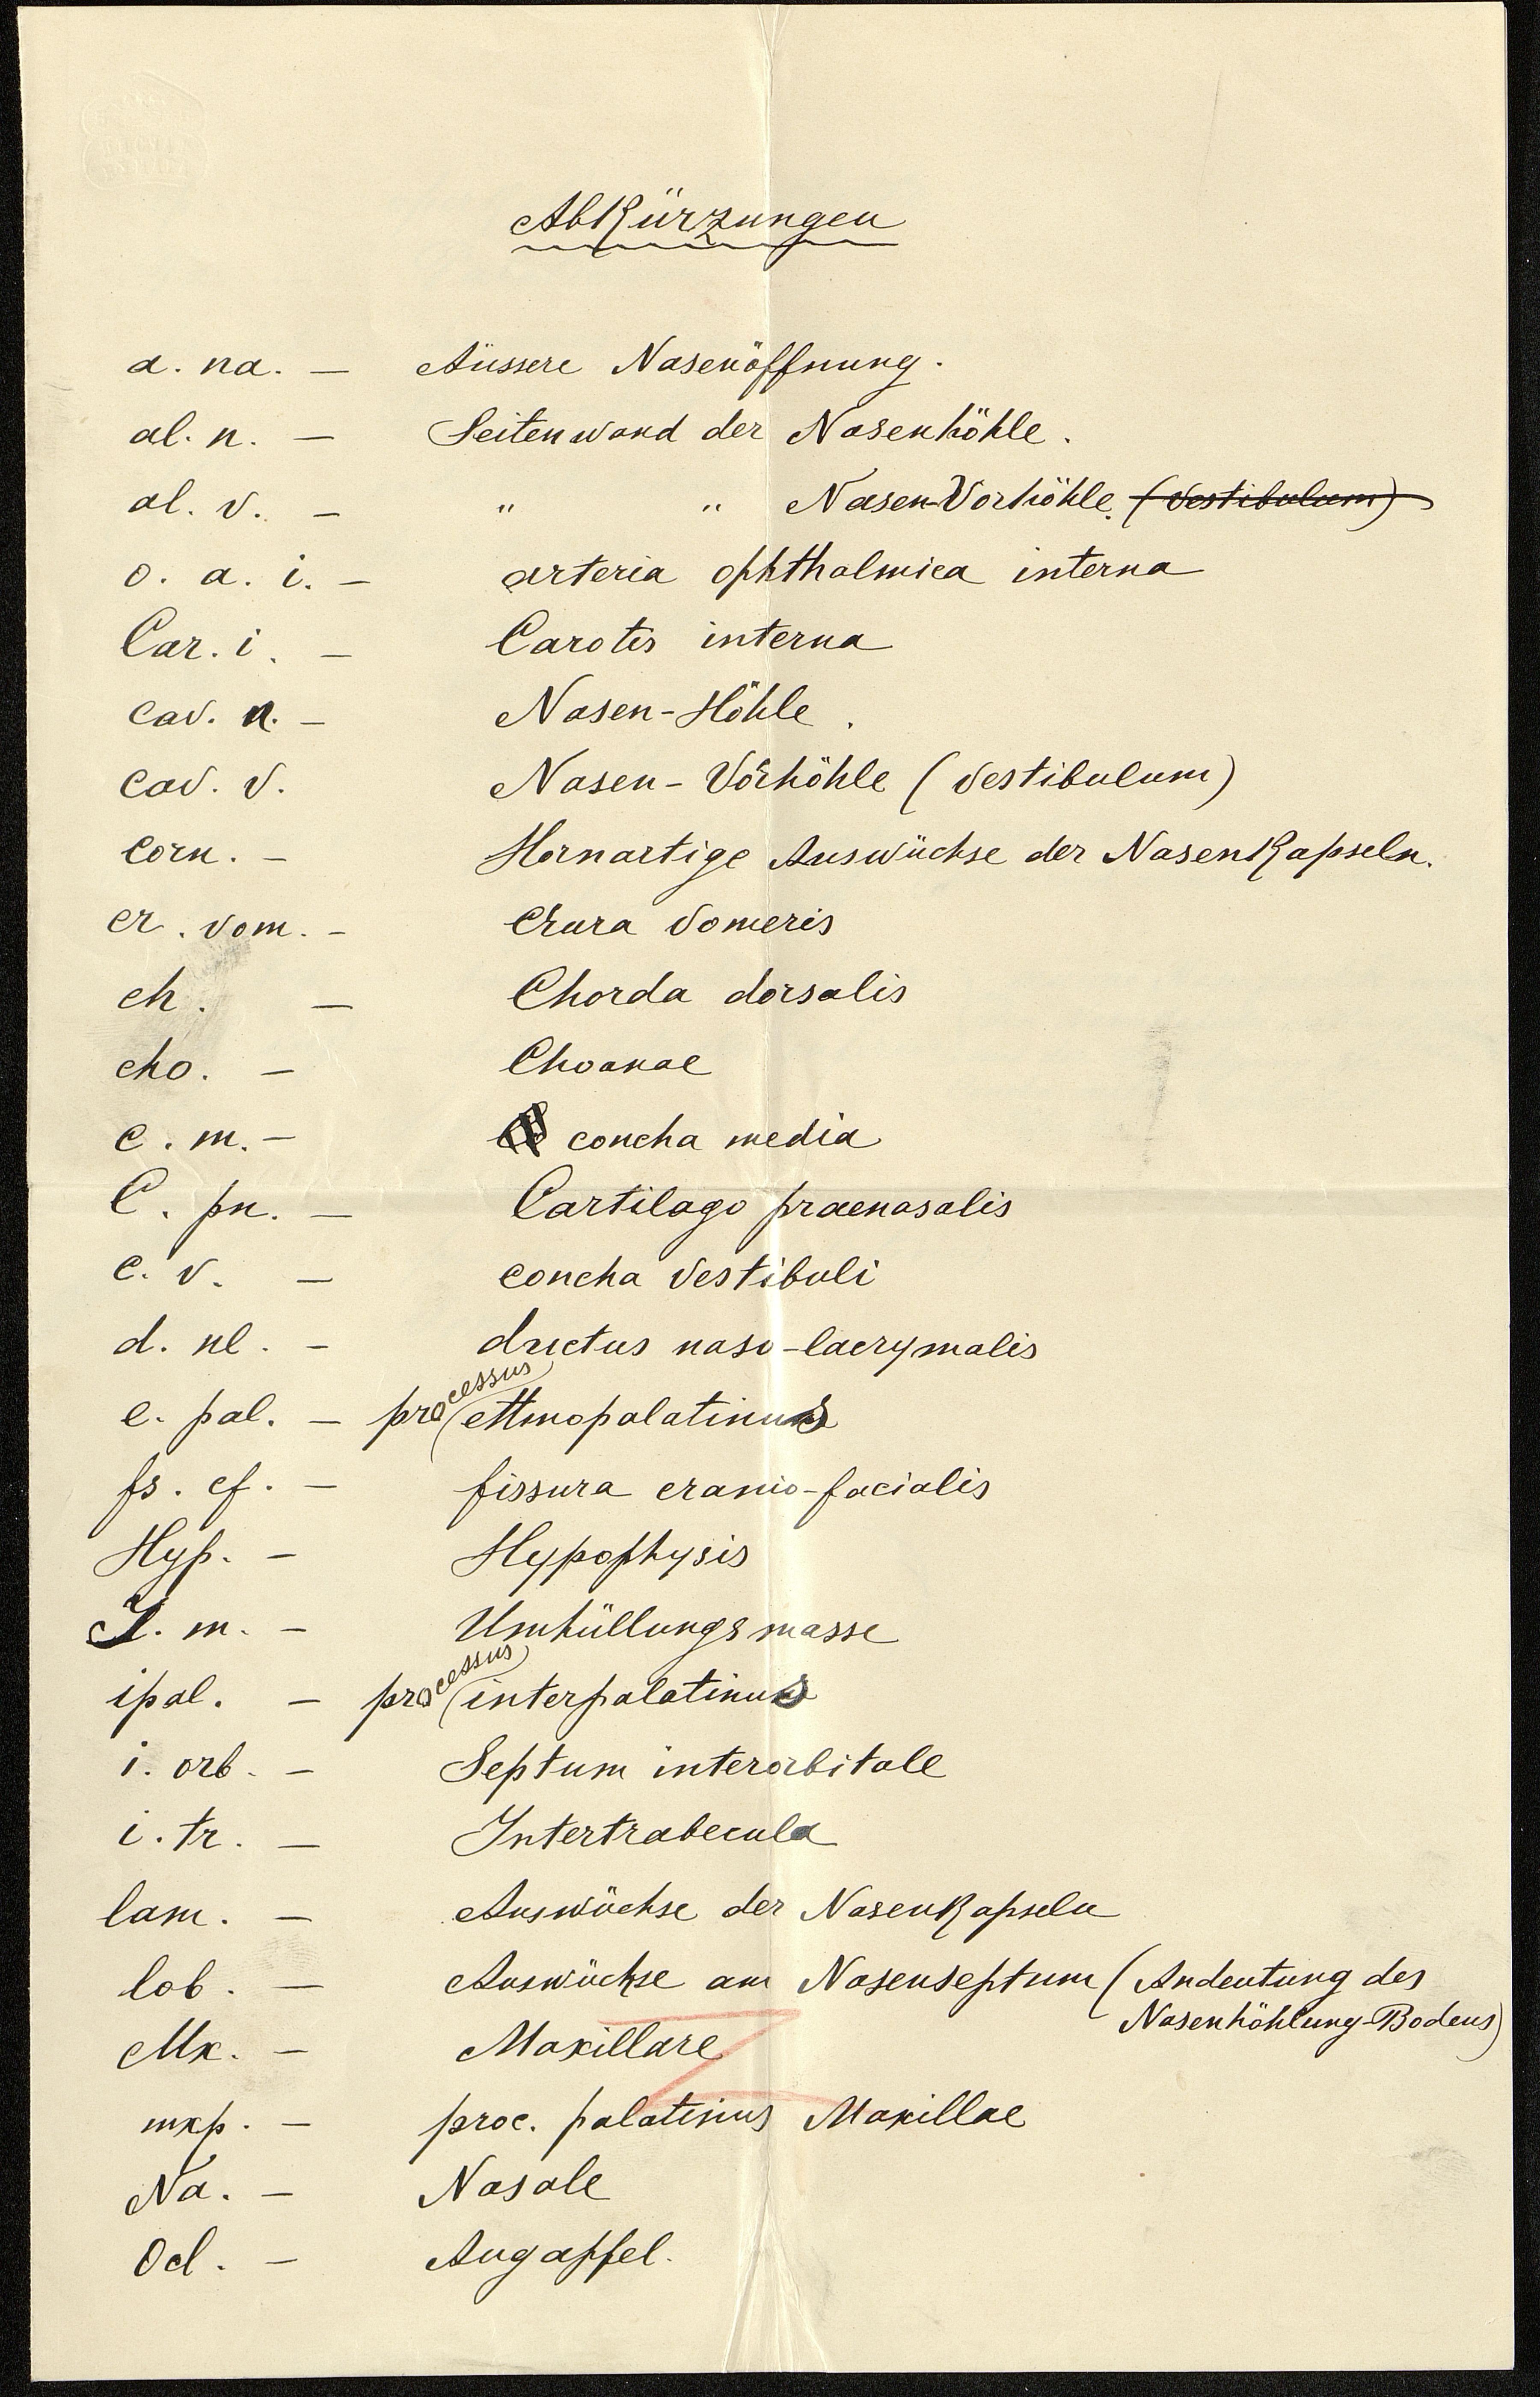 Abkürzungen
a. na. — Äussere Nasenöffnung.
al. n. — Seitenwand der Nasenhöhle.
al. v. — " " Nasen-Vorhöhle. (Vestibulum)
o. a. i. — arteria ophthalmica interna
Car. i. — Carotis interna
cav. n. — Nasen-Höhle.
cav. v. Nasen-Vorhöhle (Vestibulum)
corn. — Hornartige Auswüchse der Nasenkapseln.
cr. vom. — Crura vomeris
ch. — Chorda dorsalis
cho. — Choanae
c. m. — concha media
C. pn. — Cartilago praenasalis
c. v. — concha vestibuli
d. nl. — ductus naso-lacrymalis
e. pal. — processus ethmopalatinus
fs. cf. — fissura cranio-facialis
Hyp. — Hypophysis
I. m. — Umhüllungsmasse
ipal. — processus interpalatinus
i. orb. — Septum interorbitale
i. tr. — Intertrabecula
lam. — Auswüchse der Nasenkapseln
lob. — Auswüchse am Nasenseptum (Andeutung des
Nasenhöhlung-Bodens)
Mx. — Maxillare
mxp. — proc. palatinus Maxillae
Na. — Nasale
Ocl. — Augapfel.